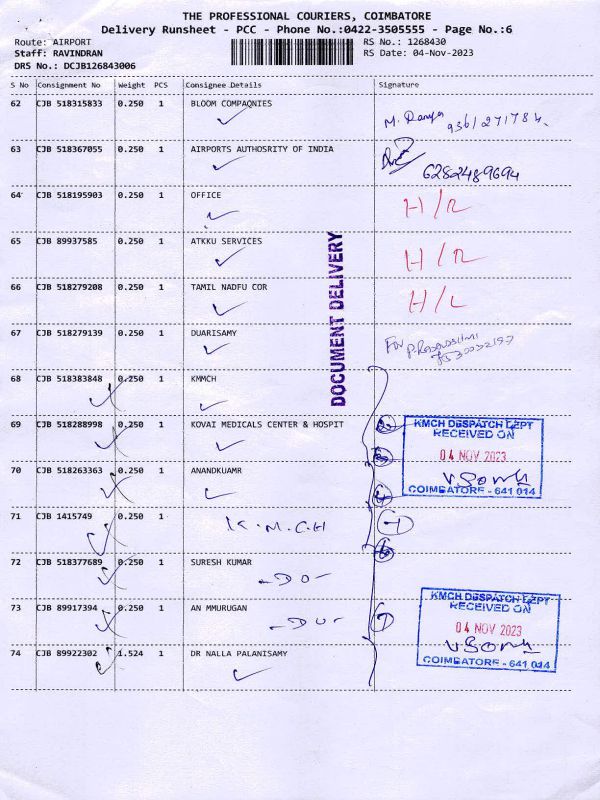 THE PROFESSIONAL COURIERS, COIMBATORE
Delivery Runsheet - PCC - Phone No.:0422-3505555 - Page No.:6
Route: AIRPORT RS No.: 1268430
Staff: RAVINDRAN RS Date: 04-Nov-2023
DRS No.: DCJB126843006
S No Consignment No Weight PCS Consignee Details Signature
62 CJB 518315833 0.250 1 BLOOM COMPAQNIES
9361271784
63 CJB 518367055 0.250 1 AIRPORTS AUTHOSRITY OF INDIA
6282489694
64 CJB 518195903 0.250 1 OFFICE H/R
65 CJB 89937585 0.250 1 ATKKU SERVICES H/R
66 CJB 518279208 0.250 1 TAMIL NADFU COR H/L
DOCUMENT DELIVERY
67 CJB 518279139 0.250 1 DUARISAMY
For
68 CJB 518383848 0.250 1 KMMCH
69 CJB 518288998 0.250 1 KOVAI MEDICALS CENTER & HOSPIT
KMCH DESPATCH DEPT
RECEIVED ON
04 NOV 2023
COIMBATORE - 641 014
70 CJB 518263363 0.250 1 ANANDKUAMR
71 CJB 1415749 0.250 1 K.M.C.H
72 CJB 518377689 0.250 1 SURESH KUMAR
-DO-
73 CJB 89917394 0.250 1 AN MMURUGAN
-DO-
KMCH DESPATCH DEPT
RECEIVED ON
04 NOV 2023
COIMBATORE - 641 014
74 CJB 89922302 1.524 1 DR NALLA PALANISAMY